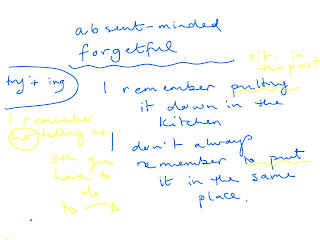 absent-minded
forgetful
sit. in
the past
try + ing
I remember putting
it down in the
kitchen
I remember
her telling me
I don't always
remember to put
it in the same
place.
sth you
have to
do
to